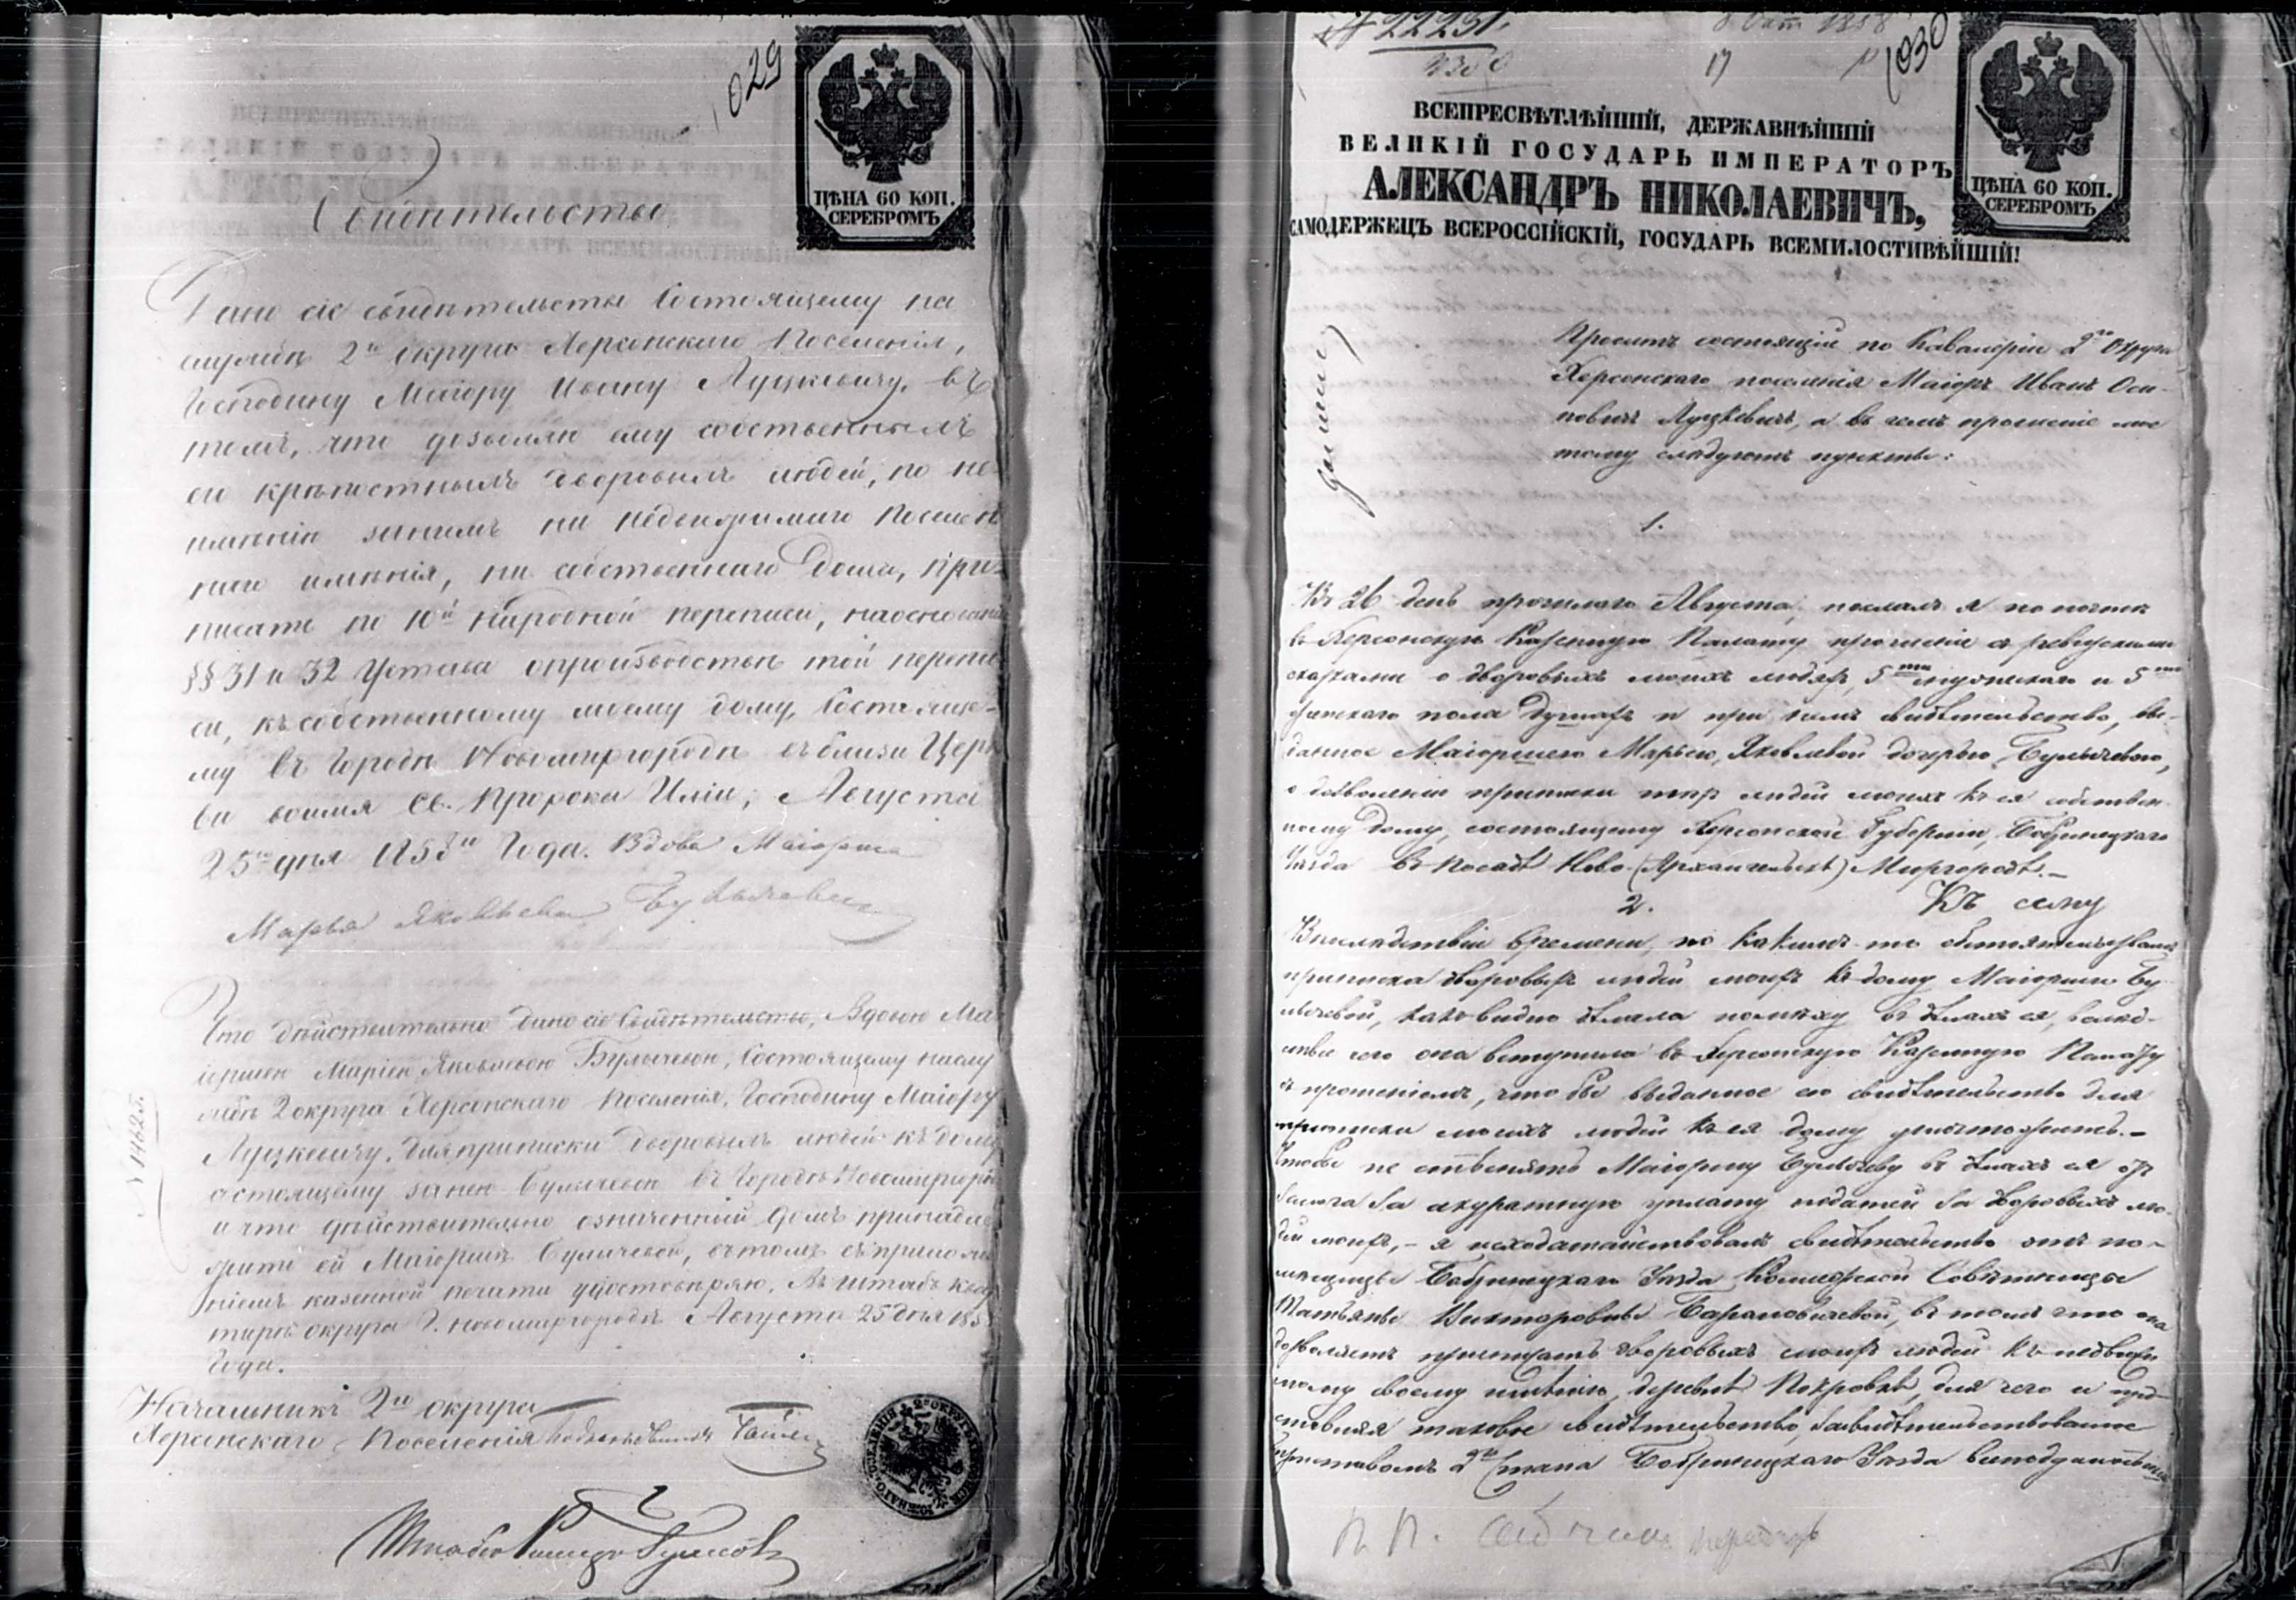 1029
ЦѢНА 60 КОП.
СЕРЕБРОМЪ
Свидѣтельство
Дано сіе свидѣтельство Состоящему на
службѣ 2го округа Херсонскаго Поселенія,
Господину Маіору Ивану Луцкевичу, въ
томъ, что дозволяю ему собственныхъ
его крѣпостныхъ дворовыхъ людей, по не-
имѣнію занимъ ни недвижимаго населен
наго имѣнія, ни собственнаго дома, при-
писать по 10й Народной переписи, наосновании
§§ 31 и 32 Устава опроизводствѣ той перепи
си, къ собственному моему дому, Состояще-
му въ Городѣ Новомиргородѣ въблизи Церк
ви воимя Св. Пророка Иліи, Августа
25го дня 1858го Года. Вдова Маіорша
Марья Яковлева Булычева
Что дѣйствительно дано сіе Свидѣтельство, Вдовою Ма
іоршею Маріею Яковлевою Булычевою, Состоящему наслу
жбѣ 2 округа Херсонскаго Поселенія, Господину Маіору
Луцкевичу, для приписки дворовыхъ людей къ дому
состоящему занею Булычевою въ Городѣ Новомиргородѣ
и что дѣйствительно означенный домъ принадле
житъ ей Маіоршѣ Булычевой, въ томъ съ приложе
ніемъ казенной печати удостовѣряю. Въ Штабъ квар
тирѣ округа Г. Новомиргородѣ Августа 25 дня 1858
Года.
№ 14625.
Начальникъ 2го округа
Херсонскаго Поселенія Подполковникъ
8 Окт 1858
17
1030
ЦѢНА 60 КОП.
СЕРЕБРОМЪ
ВСЕПРЕСВѢТЛѢЙШІЙ, ДЕРЖАВНѢЙШІЙ
ВЕЛИКІЙ ГОСУДАРЬ ИМПЕРАТОРЪ
АЛЕКСАНДРЪ НИКОЛАЕВИЧЪ,
САМОДЕРЖЕЦЪ ВСЕРОССІЙСКІЙ, ГОСУДАРЬ ВСЕМИЛОСТИВѢЙШІЙ!
Проситъ состоящій по Кавалеріи 2го Округа
Херсонскаго поселенія Маіоръ Иванъ Оси-
повичъ Луцкевичъ, а въ чемъ прошеніе мое
тому слѣдуютъ пункты:
1.
Въ 26 день прошлаго Августа, послалъ я по почтѣ
въ Херсонскую Казенную Палату прошеніе съ ревизскими
сказками о дворовыхъ моихъ людяхъ, 5ти мужескаго и 5ти
женскаго пола душахъ и при немъ свидѣтельство, вы-
данное Маіоршею Марьею, Яковлевой дочерью, Булычевою,
о дозволеніи приписки тѣхъ людей моихъ къ ея собствен-
ному дому, состоящему Херсонской Губерніи, Бобринецкаго
Уѣзда въ Посадѣ Ново-(Архангельскѣ) Миргородѣ.—
Къ сему
2.
Впослѣдствіи времени, по какимъ-то обстоятельствамъ
приписка дворовыхъ людей моихъ къ дому Маіорши Бу
лычевой, какъ видно дѣлала помѣху въ дѣлахъ ея, вслѣд-
ствіе чего она вступила въ Херсонскую Казенную Палату
съ прошеніемъ, что бы выданное ею свидѣтельство для
приписки моихъ людей къ ея дому уничтожить.—
Чтобы не стѣснять Маіоршу Булычеву въ дѣлахъ ея
за акуратную уплату податей за дворовыхъ лю-
дей моихъ, – я исходатайствовалъ свидѣтельство отъ по-
мѣщицы Бобринецкаго Уѣзда Коллежской Совѣтницы
Татьяны Викторовны Барановичевой, въ томъ что она
дозволяетъ приписать дворовыхъ моихъ людей къ недвижи
мому своему имѣнію, деревнѣ Покровкѣ, для чего и пред-
ставляя таковое свидѣтельство, засвидѣтельствованное
Приставомъ 2го Стана Бобринецкаго Уѣзда